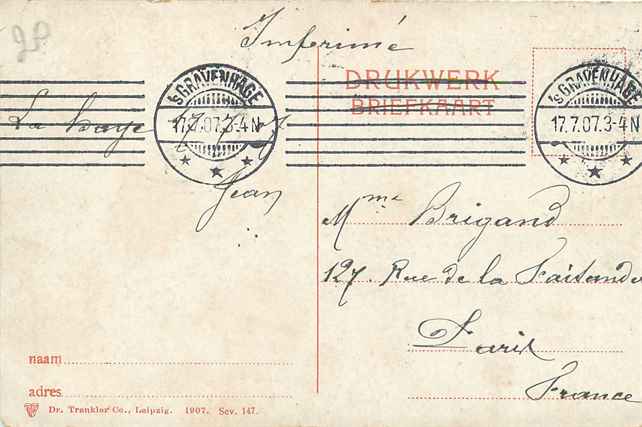 Imprimé
DRUKWERK
BRIEFKAART
'SGRAVENHAGE
17.7.07.3-4N
'SGRAVENHAGE
17.7.07.3-4N
La Haye
Jean
Mme Brigand
127. Rue de la Faisanderie
Paris
France
naam
adres
Dr. Trenkler Co., Leipzig. 1907. Sev. 147.